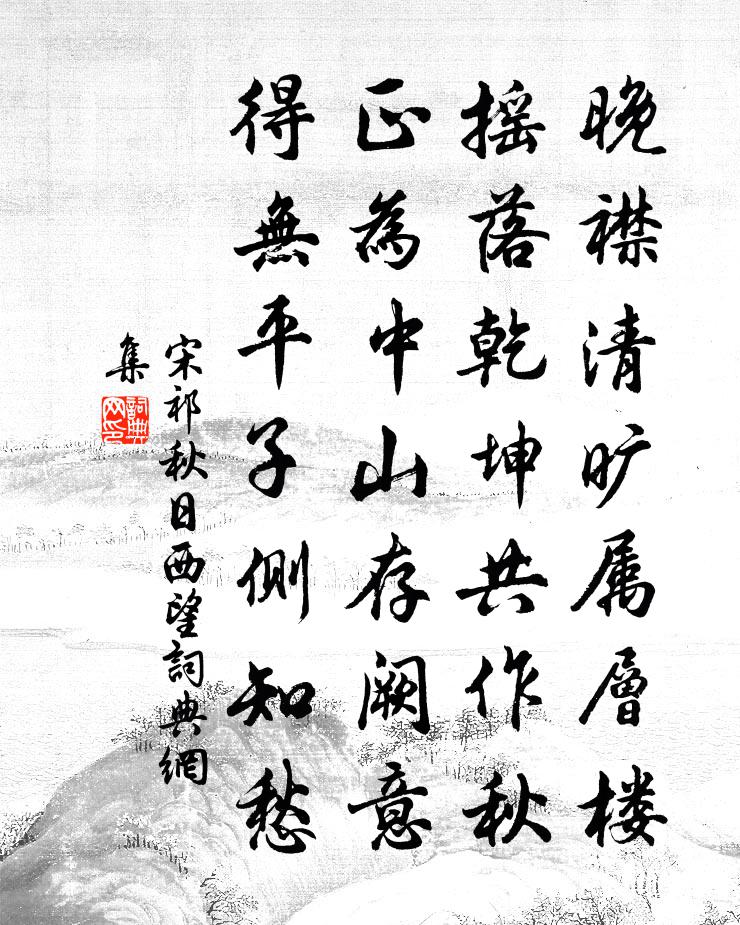 晚襟清旷属層楼
摇落乾坤共作秋
正為中山存阙意
得無平子側知愁
宋祁秋日西望詞典網
集
詞典
网印